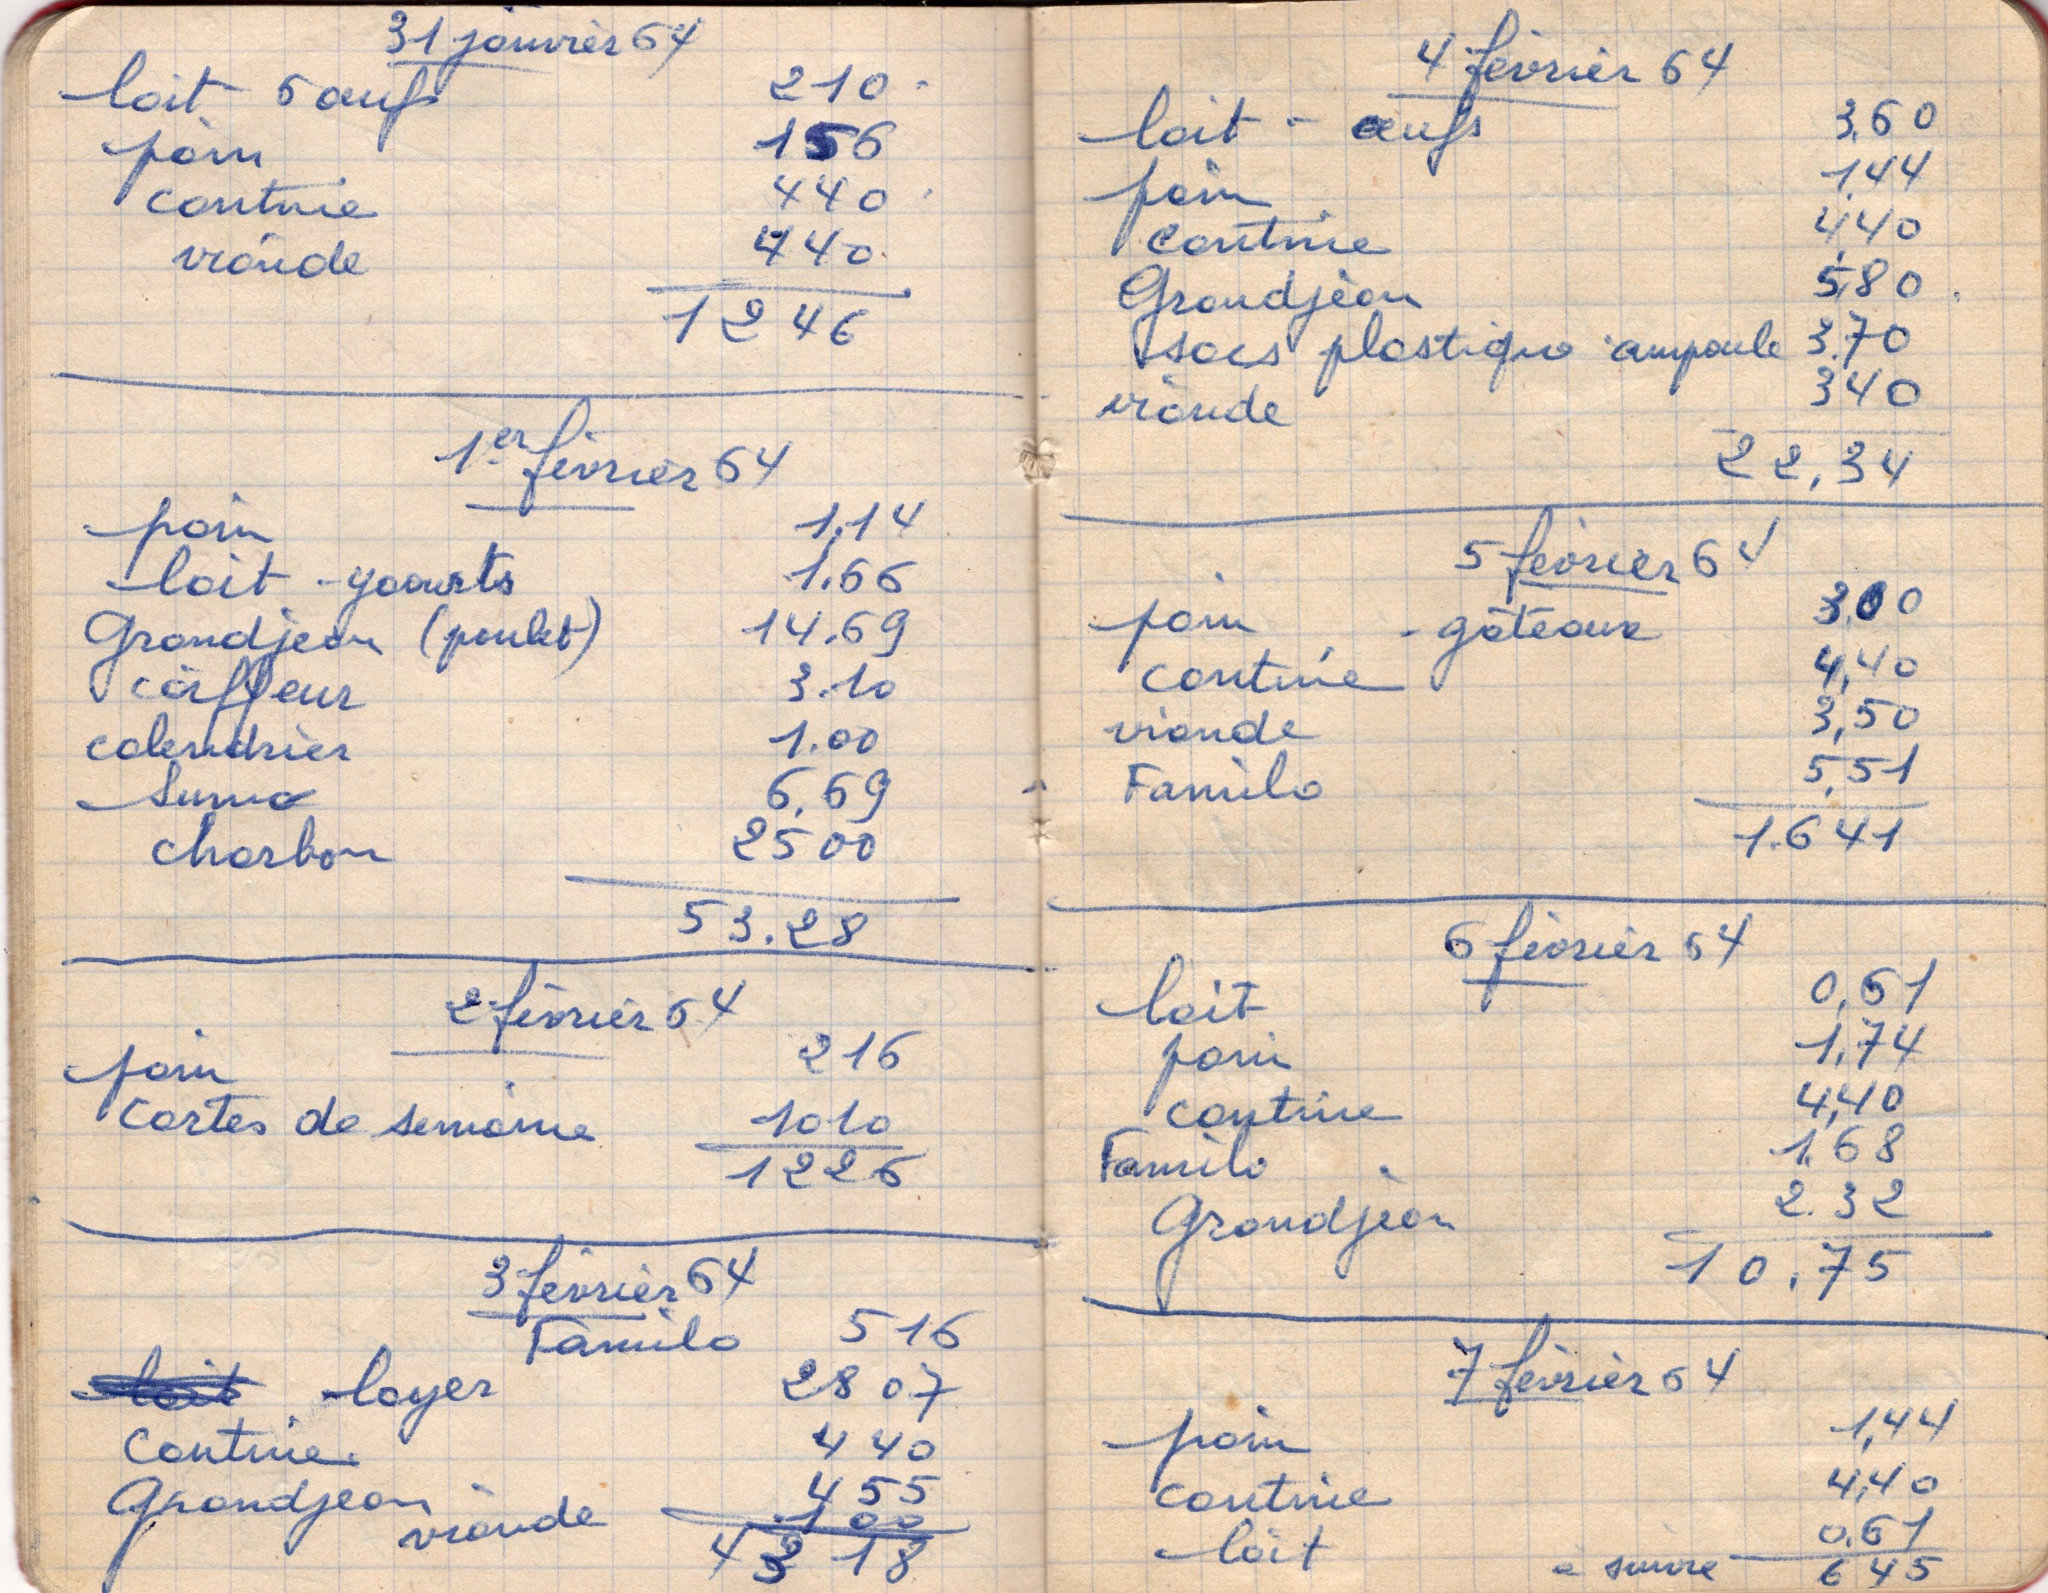 31 janvier 64
lait 6 œufs 210
pain 156
cantine 440
viande 440
1246
1er février 64
pain 1.14
lait - yaourts 1.66
Grandjean (poulet) 14.69
coiffeur 3.10
calendrier 1.00
Suma 6.69
charbon 2500
53.28
2 février 64
pain 216
cartes de semaine 1010
1226
3 février 64
Familo 516
loyer 2807
cantine 440
Grandjean 455
viande 100
4318
4 février 64
lait - œufs 3,60
pain 1,44
cantine 4,40
Grandjean 5,80
sacs plastique ampoule 3.70
viande 340
22,34
5 février 64
pain - gâteaux 3.00
cantine 4,40
viande 3,50
Familo 5,51
1.641
6 février 64
lait 0,61
pain 1,74
cantine 4,40
Familo 1,68
Grandjean 2.32
10,75
7 février 64
pain 1,44
cantine 4,40
lait 0,61
à suivre 645